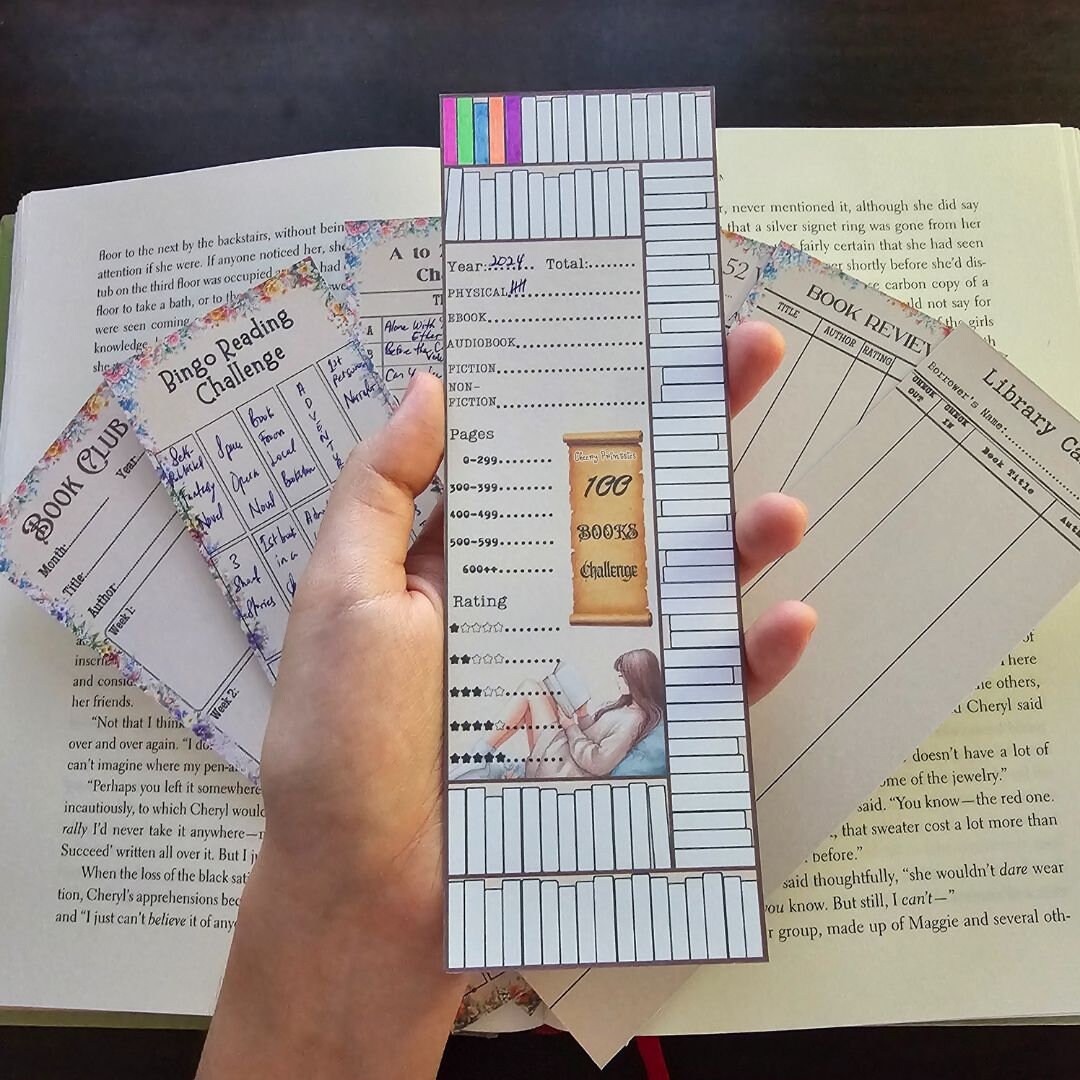 floor to the next by the backstairs, without bein
attention if she were. If anyone noticed her, she
tub on the third floor was occupied had
floor to take a bath, or to
were seen coming
knowledge
she
BOOK CLUB
Year:
Month:
Title:
Author:
Week 1:
Week 2:
Bingo Reading
Challenge
Self-
Published
Fantasy
Novel
Space
Opera
Novel
Book
From
Local
Bookstore
ADVENTUR
1st
Person
Narrator
3
Short
Stories
1st book
in a
A to
Ch
A
Alone With
B
Before the C
Year:2024 Total:
PHYSICAL
EBOOK
AUDIOBOOK
FICTION
NON-
FICTION
Pages
0-299
300-399
400-499
500-599
600++
Cherry Printables
100
BOOKS
Challenge
Rating
52
BOOK REVIEW
TITLE AUTHOR RATING
Library Ca
Borrower's Name:
CHECK OUT
CHECK IN
Book Title
Aut
inscri
and consid
her friends.
"Not that I thin
over and over again. "I do
can't imagine where my pen-a
"Perhaps you left it somewhere
incautiously, to which Cheryl would
rally I'd never take it anywhere—
Succeed' written all over it. But I j
When the loss of the black sat
tion, Cheryl's apprehensions bec
and "I just can't believe it of any
r, never mentioned it, although she did say
that a silver signet ring was gone from her
fairly certain that she had seen
er shortly before she'd dis-
se carbon copy of a
ld not say for
the girls
of
here
he others,
Cheryl said
doesn't have a lot of
ome of the jewelry."
said. "You know—the red one.
, that sweater cost a lot more than
before."
said thoughtfully, "she wouldn't dare wear
you know. But still, I can't—"
r group, made up of Maggie and several oth-